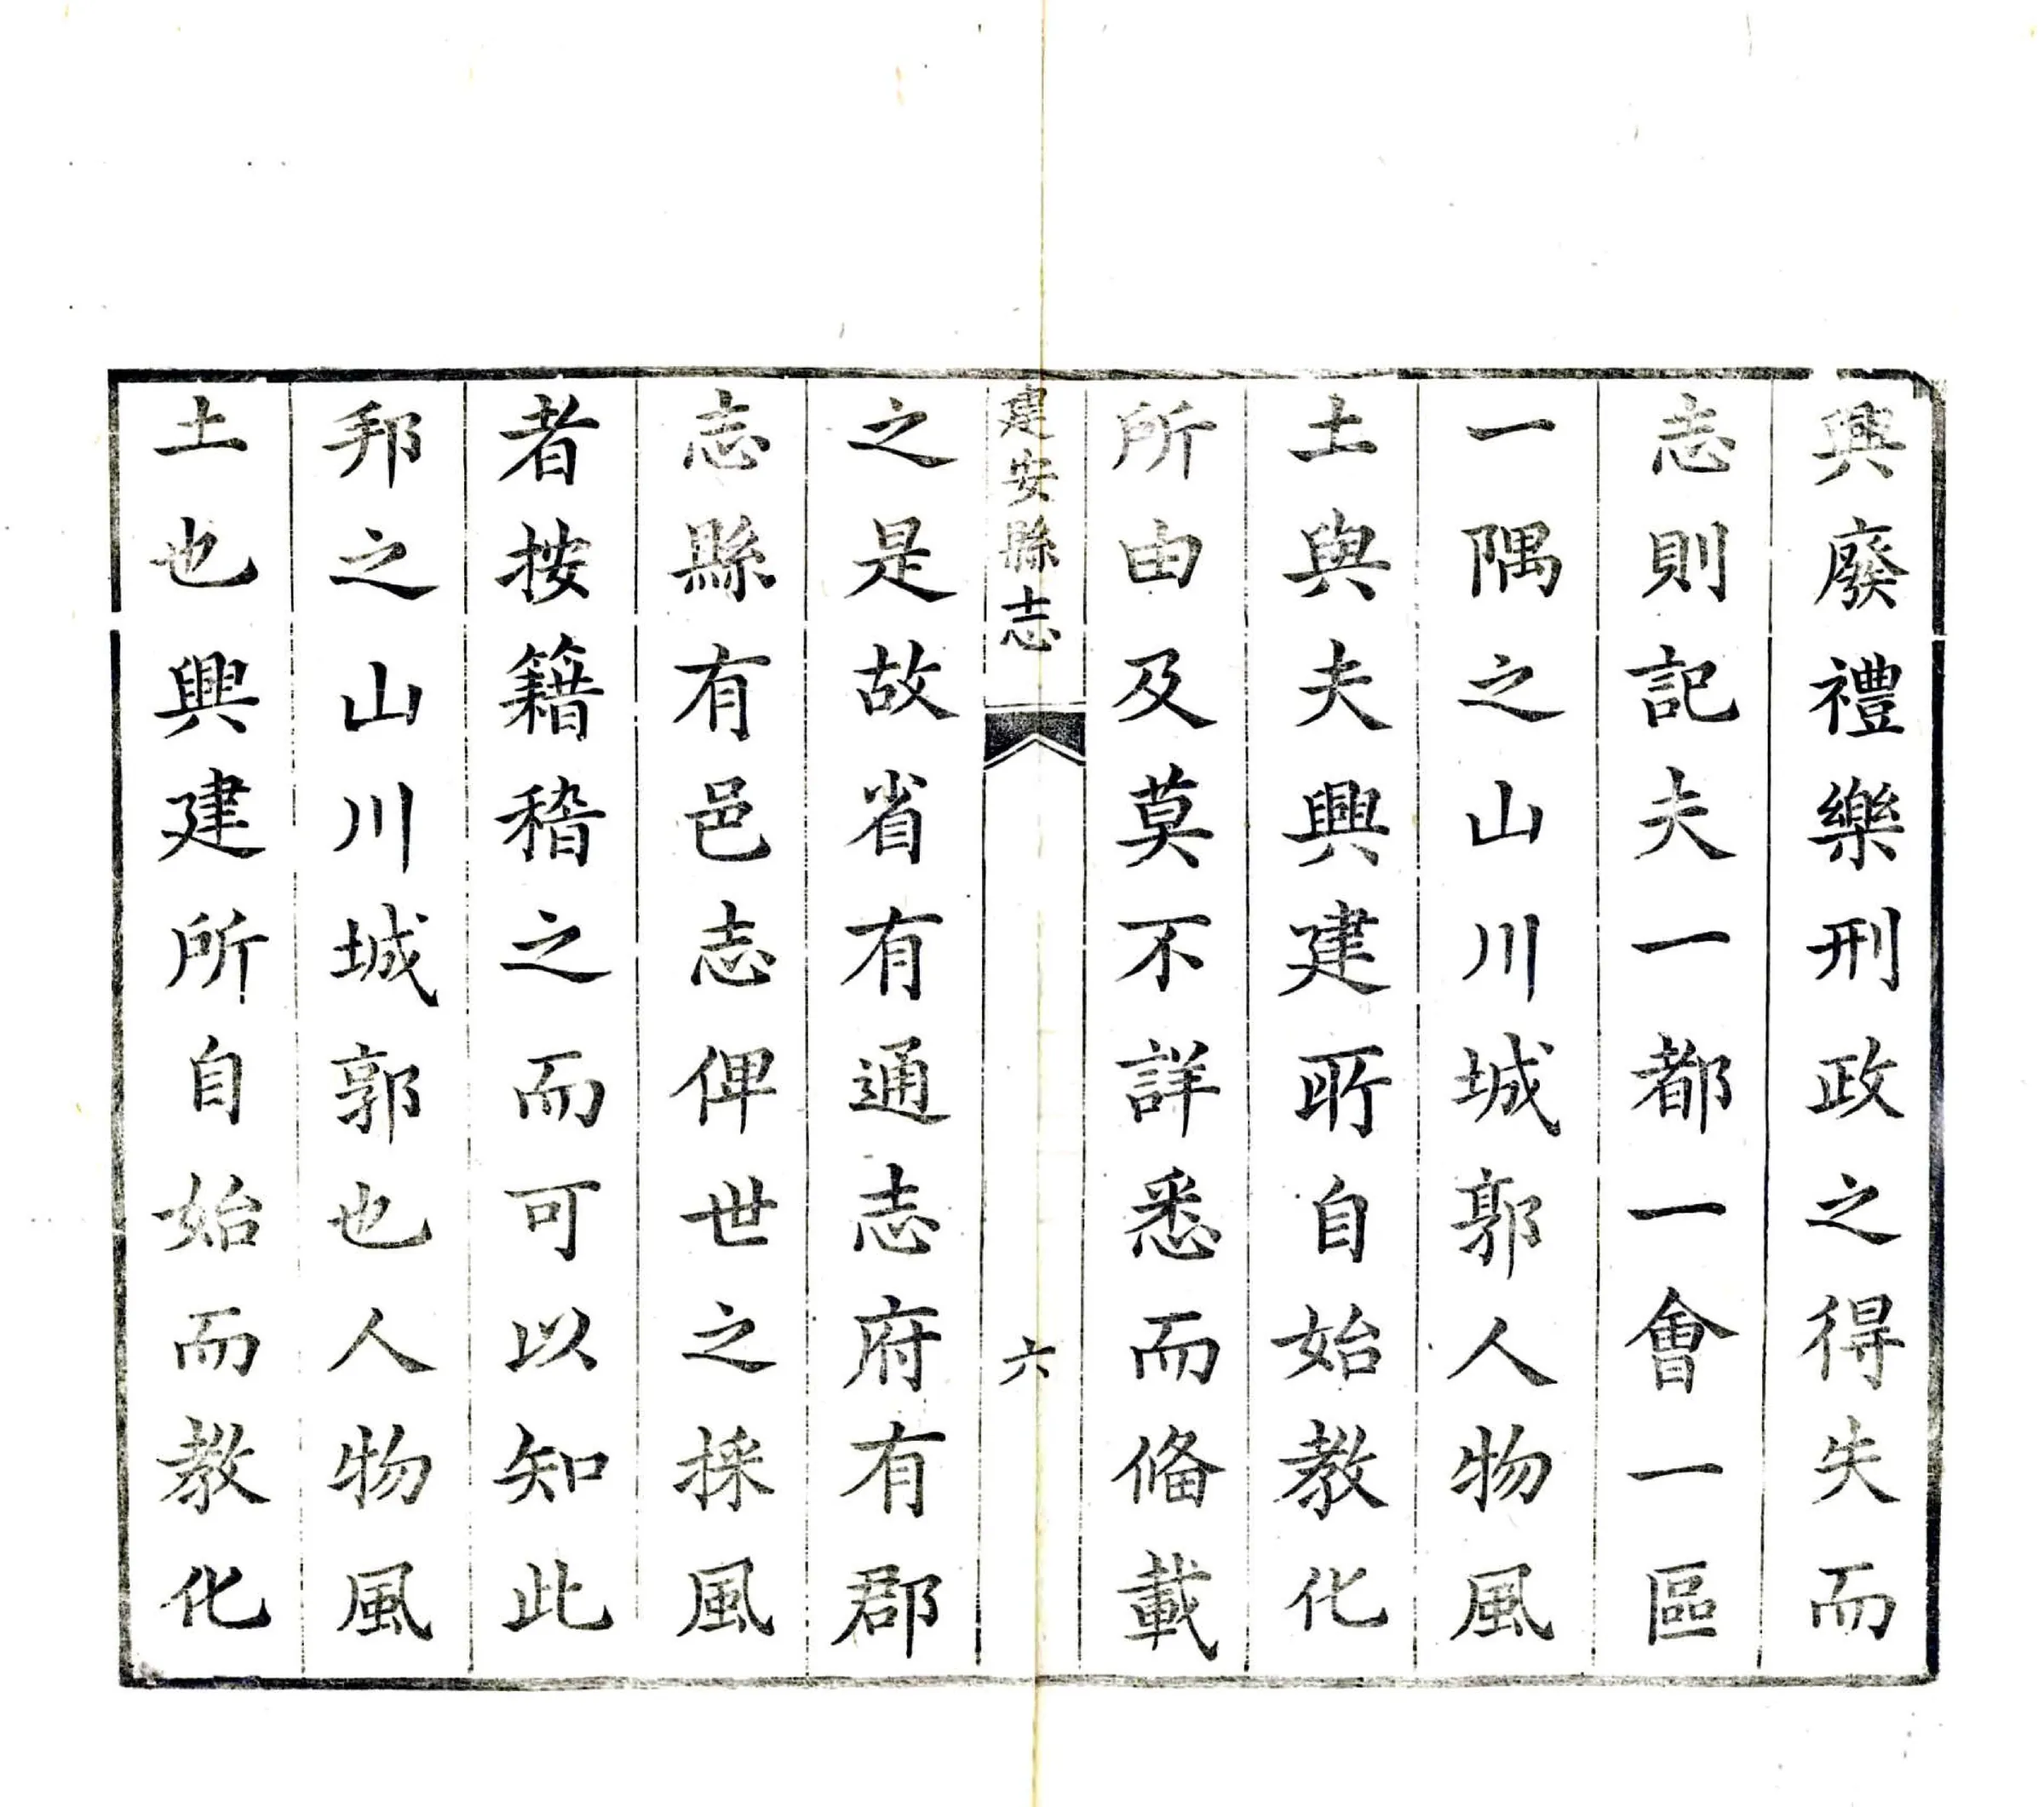 興廢禮樂刑政之得失而
志則記夫一都一會一區
一隅之山川城郭人物風
土與夫興建所自始教化
所由及莫不詳悉而俻載
建安縣志 六
之是故省有通志府有郡
志縣有邑志俾世之採風
者按籍稽之而可以知此
邦之山川城郭也人物風
土也興建所自始而教化